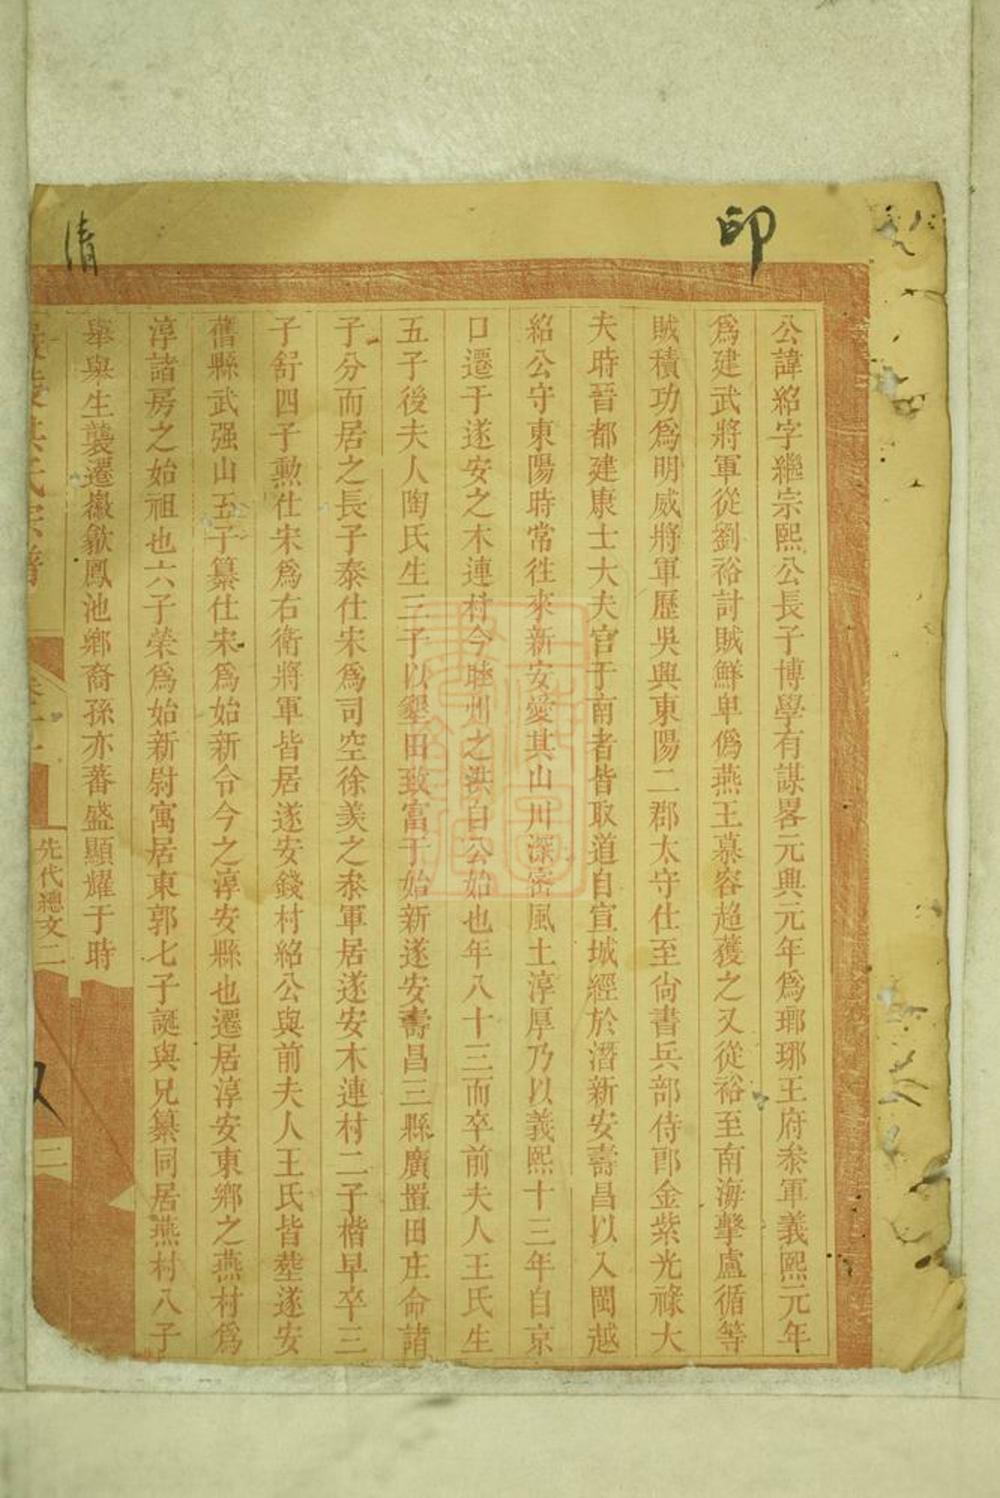 印
清
公諱紹字繼宗熙公長子博學有謀畧元興元年爲瑯琊王府叅軍義熙元年
爲建武將軍從劉裕討賊鮮卑僞燕王慕容超獲之又從裕至南海擊盧循等
賊積功爲明威將軍歷吳興東陽二郡太守仕至尚書兵部侍郎金紫光祿大
夫時晉都建康士大夫官于南者皆取道自宣城經於潛新安壽昌以入閩越
紹公守東陽時常徃來新安愛其山川深密風土淳厚乃以義熙十三年自京
口遷于遂安之木連村今睦州之洪自公始也年八十三而卒前夫人王氏生
五子後夫人陶氏生三子以墾田致富于始新遂安壽昌三縣廣置田庄命諸
子分而居之長子泰仕宋爲司空徐羨之叅軍居遂安木連村二子楷早卒三
子舒四子勲仕宋爲右衛將軍皆居遂安錢村紹公與前夫人王氏皆塟遂安
舊縣武强山五子纂仕宋爲始新令今之淳安縣也遷居淳安東鄉之燕村爲
淳諸房之始祖也六子榮爲始新尉寓居東郭七子誕與兄纂同居燕村八子
舉舉生襲遷徽歙鳳池鄉裔孫亦蕃盛顯耀于時
氏宗譜
先代總文二
二